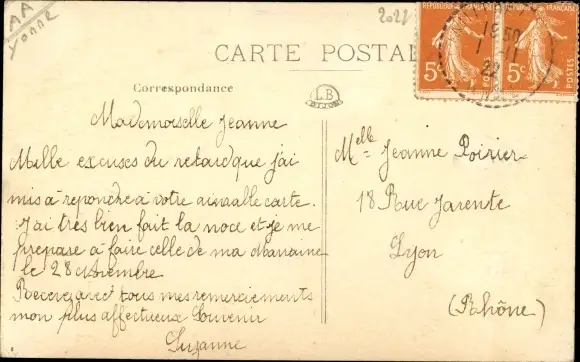 AA
Yonne
2022
CARTE POSTAL
Correspondance
LB
DIJON
RÉPUBLIQUE FRANÇAISE
5c
POSTES
RÉPUBLIQUE FRANÇAISE
5c
POSTES
15 50
1 - 11
22
Mademoiselle Jeanne
Mille excuses du retard que j'ai
mis à repondre à votre aimable carte.
J'ai très bien fait la noce et je me
prepare à faire celle de ma marraine
le 28 novembre
Recevez avec tous mes remerciements
mon plus affectueux Souvenir
Suzanne
Melle Jeanne Poirier
18 Rue Jarente
Lyon
(Rhône)